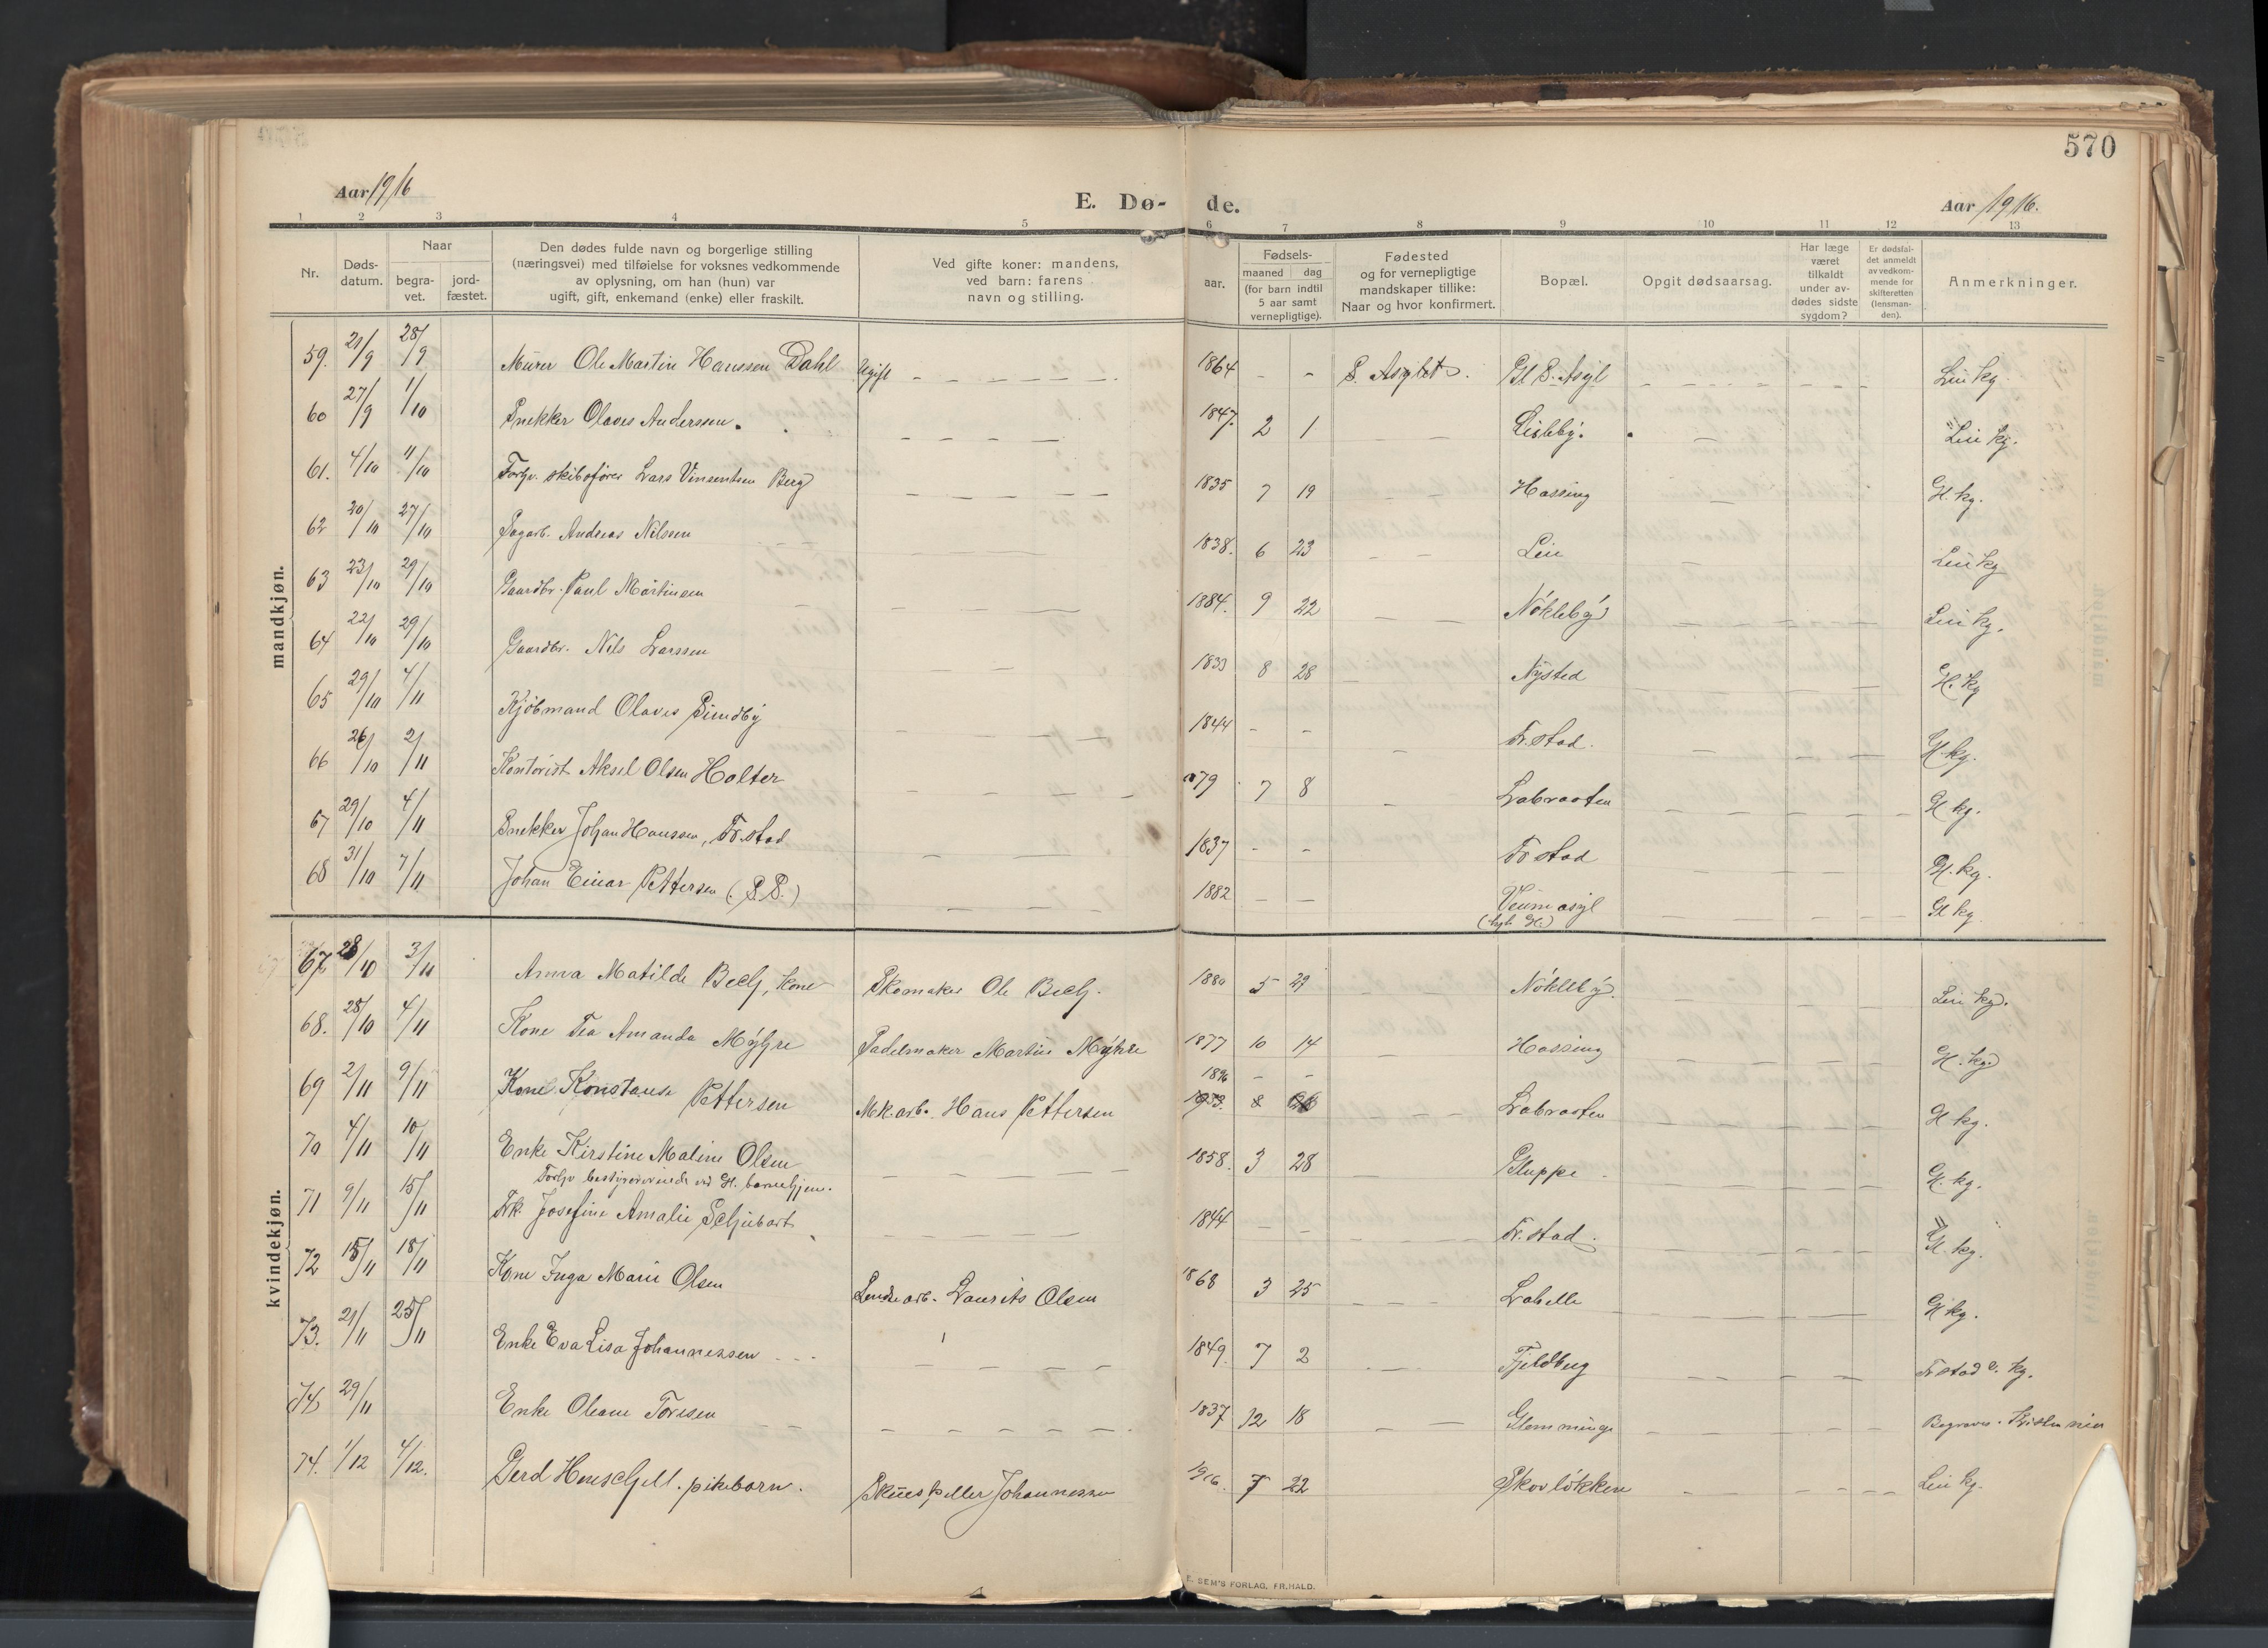 570
Aar 1916
E. Dø- de.
Aar 1916.
1 2 3 4 5 6 7 8 9 10 11 12 13
Nr.
Døds-
datum.
Naar
begra-
vet.
jord-
fæstet.
Den dødes fulde navn og borgerlige stilling
(næringsvei) med tilføielse for voksnes vedkommende
av oplysning, om han (hun) var
ugift, gift, enkemand (enke) eller fraskilt.
Ved gifte koner: mandens,
ved barn: farens
navn og stilling.
Fødsels-
aar.
maaned dag
(for barn indtil
5 aar samt
vernepligtige).
Fødested
og for vernepligtige
mandskaper tillike:
Naar og hvor konfirmert.
Bopæl.
Opgit dødsaarsag.
Har læge
været
tilkaldt
under av-
dødes sidste
sygdom?
Er dødsfal-
det anmeldt
av vedkom-
mende for
skifteretten
(lensman-
den).
Anmerkninger.
mandkjøn.
59. 21/9 28/9 Murer Ole Martin Hanssen Dahl Ugift 1864 - - S. Asylet. Gl S. Asyl Leie kg.
60 27/9 1/10 Snekker Olaves Anderssen. 1847. 2 1 Lisleby. Leie kg.
61. 4/10 11/10 Forhv. skibsfører Lars Vinsentsen Berg 1835 7 19 Hassing Gl. kg.
62 20/10 27/10 Sagarb. Andreas Nilssen 1838. 6 23 Leie Leie kg
63 23/10 29/10 Gaardbr. Paul Martinsen 1884. 9 22 Nökleby Leie kg.
64 22/10 29/10 Gaardbr. Nils Larssen 1833 8 28 Nysted Gl. kg
65 29/10 4/11 Kjöbmand Olaves Sundby 1844 - - Fr.stad. Gl. kg.
66 26/10 2/11 Kontorist Aksel Olsen Holter 79 7 8 Labraaten Gl kg.
67 29/10 4/11 Snekker Johan Hanssen, Fr.stad 1837 - - Fr stad Gl. kg.
68 31/10 7/11 Johan Einar Pettersen (S.S.) 1882 - - Veum asyl Gl kg
kvindekjøn.
67 28/10 3/11 Anna Matilde Bech, kone Skomaker Ole Bech. 1880 5 29 Nökleby Leie kg.
68. 28/10 4/11 Kone Tea Amanda Myhre Sadelmaker Martin Myhre 1877 10 14 Hassing Gl. kg
1896 - -
69 2/11 9/11 Kone Konstanse Pettersen Mek.arb. Hans Pettersen Labraaten Gl kg.
70 4/11 10/11 Enke Kirstine Maline Olsen 1858. 3 28 Gluppe Gl. kg.
Forhv bestyrerinde ved Gl. barnehjem.
71 9/11 15/11 Frk. Josefine Amalie Schubart 1844 - - Fr.stad. Gl. kg.
72 15/11 18/11 Kone Inga Marie Olsen Lendsearb. Laurits Olsen 1868 3 25 Labelle Gl kg.
73. 21/11 25/11 Enke Eva Lisa Johannessen 1849. 7 2 Fjeldberg Fr stad v. kg.
74 29/11 Enke Oleane Toresen 1837 12 18 Glemminge Begraves. Kristiania
74. 1/12 4/12. Gerd Henschjell. pikebarn. Skuespiller Johannessen 1916. 7 22 Skovlökken Leie kg.
E. SEM'S FORLAG, FR.HALD.